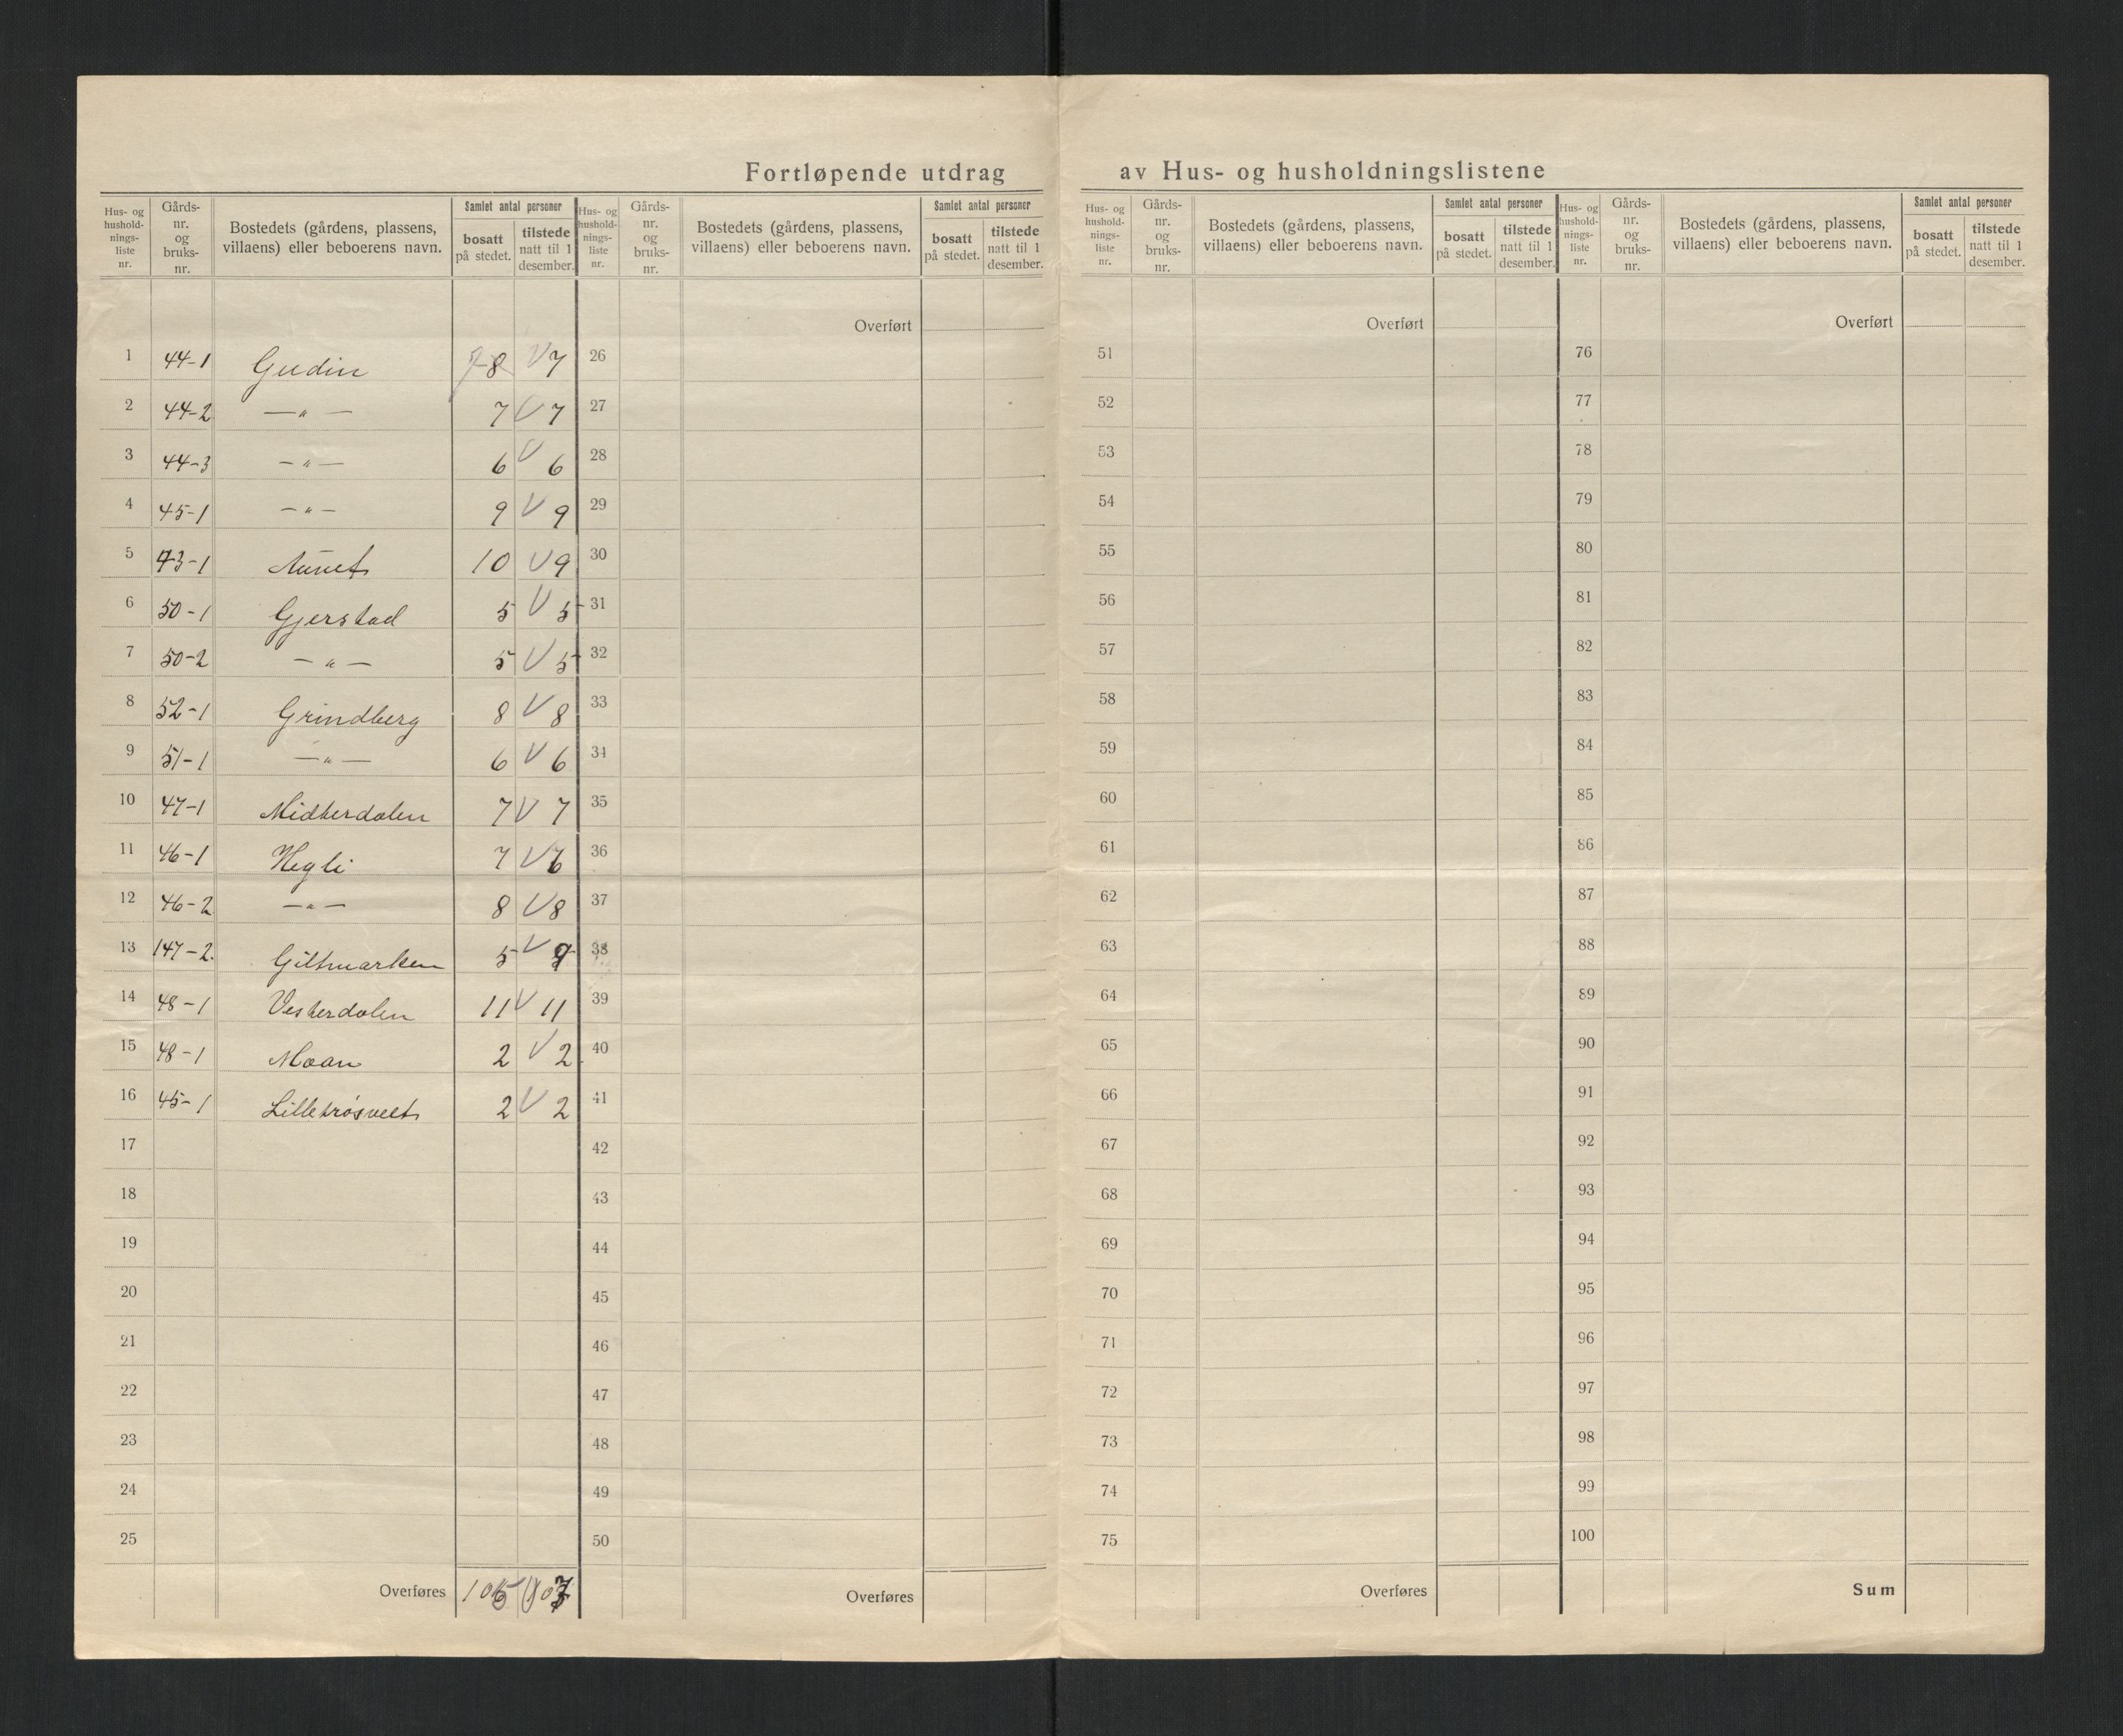 Fortløpende utdrag av Hus- og husholdningslistene
Hus- og hushold- nings- liste nr. | Gårds- nr. og bruks- nr. | Bostedets (gårdens, plassens, villaens) eller beboerens navn. | Samlet antal personer | bosatt på stedet. | tilstede natt til 1 desember.
Hus- og hushold- nings- liste nr. | Gårds- nr. og bruks- nr. | Bostedets (gårdens, plassens, villaens) eller beboerens navn. | Samlet antal personer | bosatt på stedet. | tilstede natt til 1 desember.
Hus- og hushold- nings- liste nr. | Gårds- nr. og bruks- nr. | Bostedets (gårdens, plassens, villaens) eller beboerens navn. | Samlet antal personer | bosatt på stedet. | tilstede natt til 1 desember.
Hus- og hushold- nings- liste nr. | Gårds- nr. og bruks- nr. | Bostedets (gårdens, plassens, villaens) eller beboerens navn. | Samlet antal personer | bosatt på stedet. | tilstede natt til 1 desember.
Overført Overført Overført
1 44-1 Gudin 8 V 7 26 51 76
2 44-2 — " — 7 V 7 27 52 77
3 44-3 — " — 6 V 6 28 53 78
4 45-1 — " — 9 V 9 29 54 79
5 43-1 Aunet 10 V 9 30 55 80
6 50-1 Gjerstad 5 V 5 31 56 81
7 50-2 — " — 5 V 5 32 57 82
8 52-1 Grindberg 8 V 8 33 58 83
9 51-1 — " — 6 V 6 34 59 84
10 47-1 Midterdalen 7 V 7 35 60 85
11 46-1 Hegli 7 V 6 36 61 86
12 46-2 — " — 8 V 8 37 62 87
13 147-2. Giltmarken 5 V 38 63 88
14 48-1 Vesterdalen 11 V 11 39 64 89
15 48-1 Moan 2 V 2 40 65 90
16 45-1 Lilletrøsveet 2 V 2 41 66 91
17 42 67 92
18 43 68 93
19 44 69 94
20 45 70 95
21 46 71 96
22 47 72 97
23 48 73 98
24 49 74 99
25 50 75 100
Overføres Overføres Overføres Sum